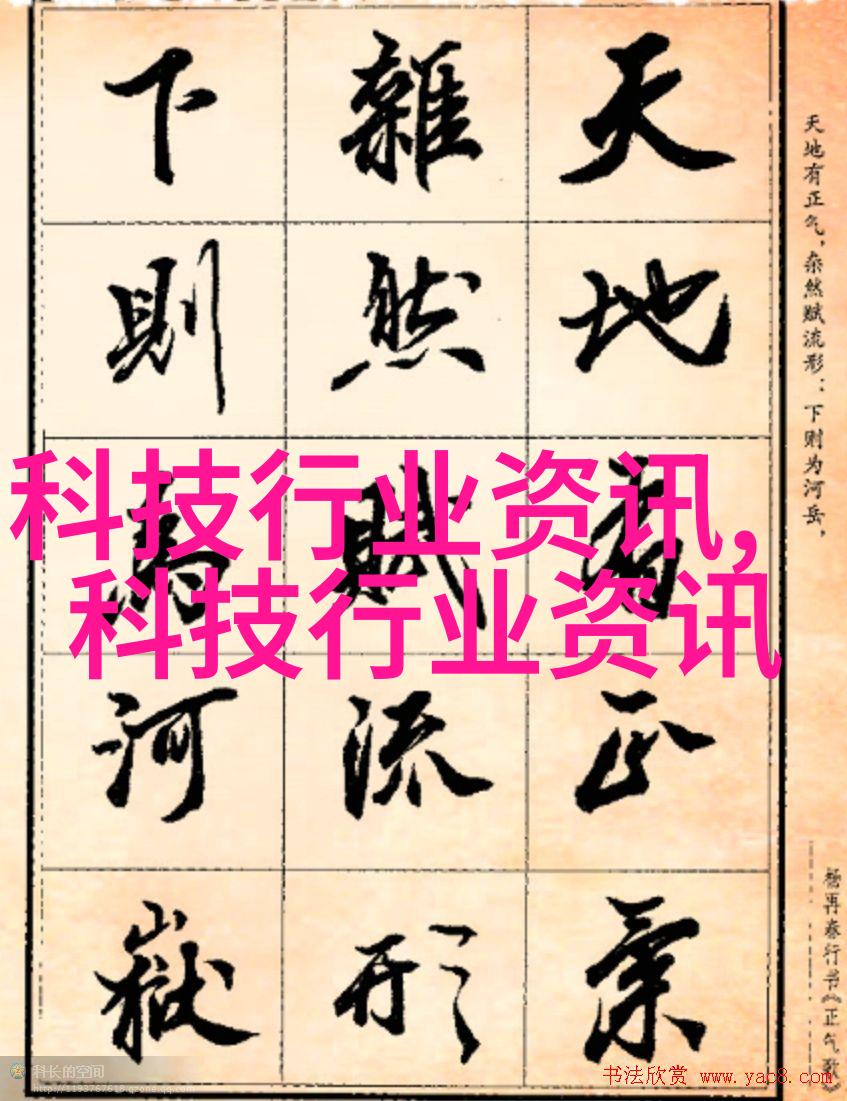 天地有正氣
雜然賦流形
下則為河嶽
天地有正气,杂然赋流形:下则为河岳,
杨再春行书《正气歌》
科技行业资讯,
科技行业资讯
科长的空间
http://1193767618.qzone.qq.com
书法欣赏 www.yac8.com